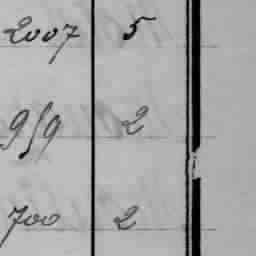 2007 5
959 2
700 2